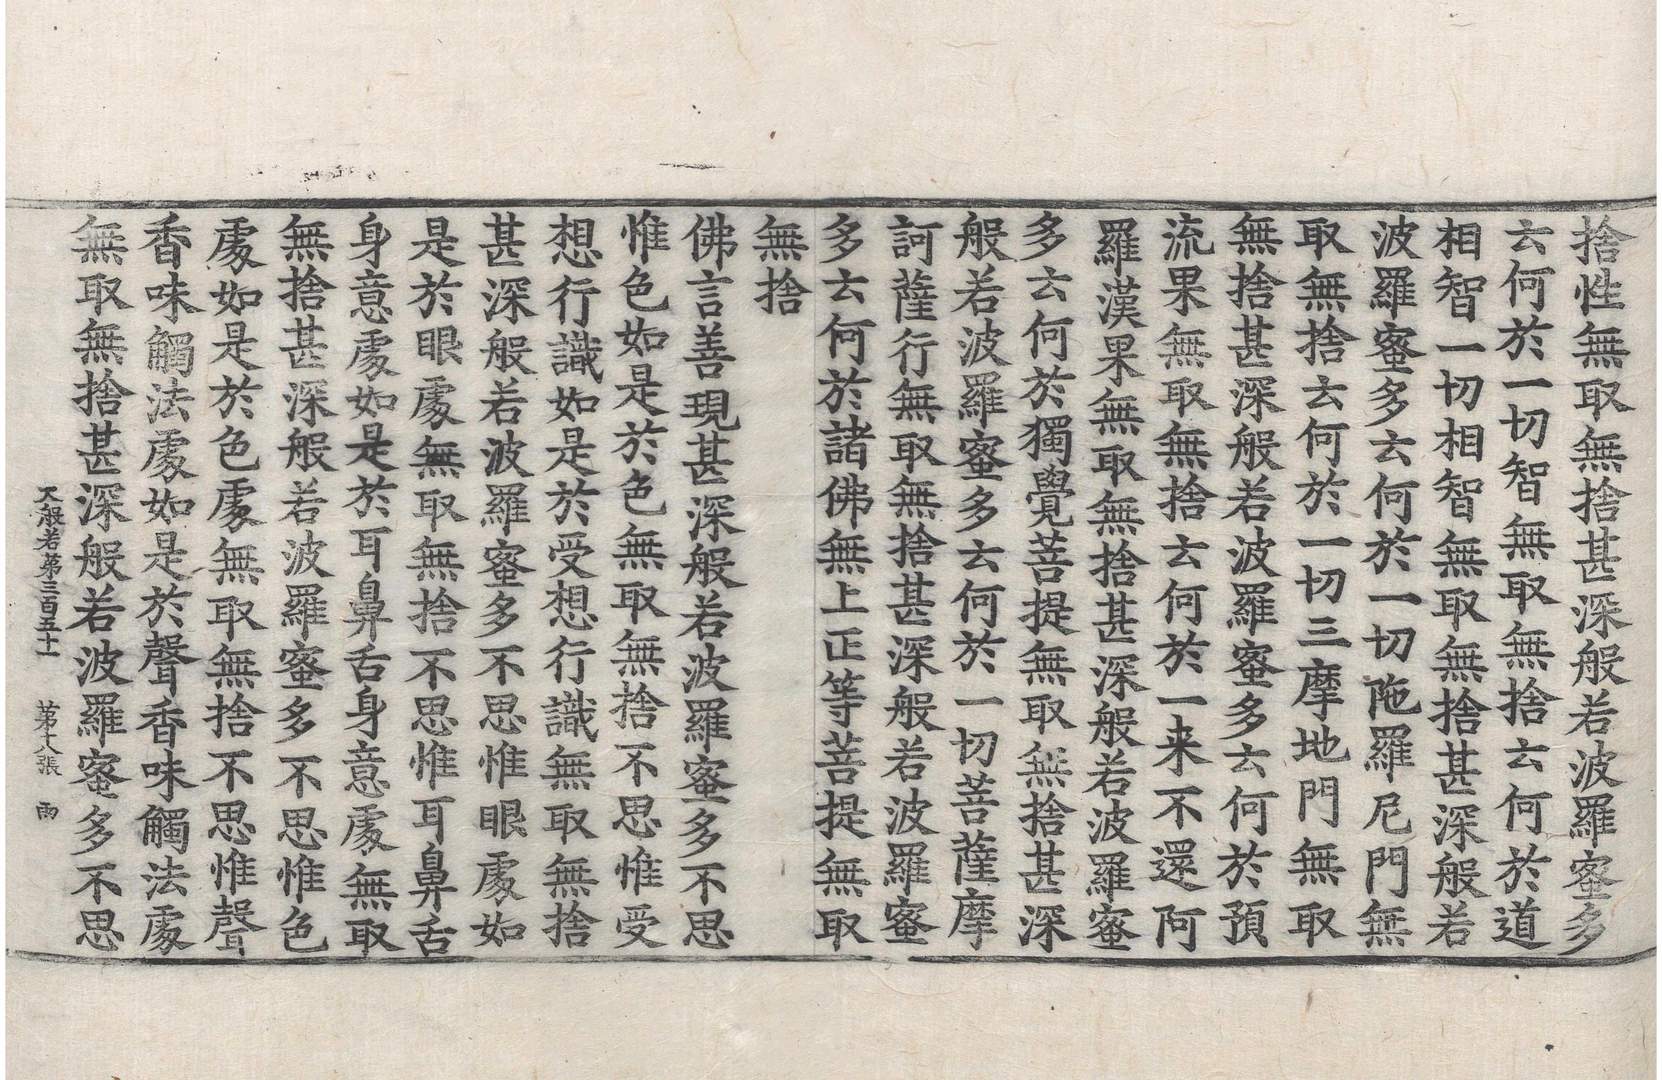 捨性無取無捨甚深般若波羅蜜多
云何於一切智無取無捨云何於道
相智一切相智無取無捨甚深般若
波羅蜜多云何於一切陁羅尼門無
取無捨云何於一切三摩地門無取
無捨甚深般若波羅蜜多云何於預
流果無取無捨云何於一来不還阿
羅漢果無取無捨甚深般若波羅蜜
多云何於獨覺菩提無取無捨甚深
般若波羅蜜多云何於一切菩薩摩
訶薩行無取無捨甚深般若波羅蜜
多云何於諸佛無上正等菩提無取
無捨
佛言善現甚深般若波羅蜜多不思
惟色如是於色無取無捨不思惟受
想行識如是於受想行識無取無捨
甚深般若波羅蜜多不思惟眼處如
是於眼處無取無捨不思惟耳鼻舌
身意處如是於耳鼻舌身意處無取
無捨甚深般若波羅蜜多不思惟色
處如是於色處無取無捨不思惟聲
香味觸法處如是於聲香味觸法處
無取無捨甚深般若波羅蜜多不思
大般若第三百五十一 第十八張 雨